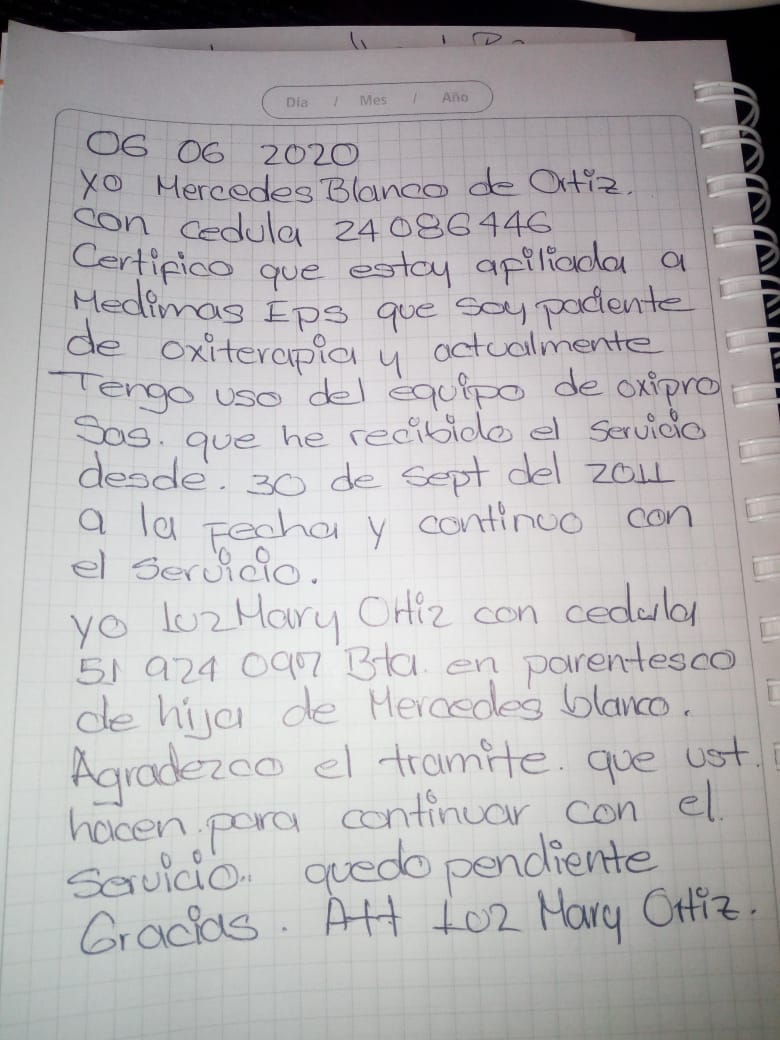 Día / Mes / Año
06 06 2020
Yo Mercedes Blanco de Ortiz.
con cedula 24086446
Certifico que estoy afiliada a
Medimas Eps que soy paciente
de oxiterapia y actualmente
Tengo uso del equipo de oxipro
Sas. que he recibido el servicio
desde. 30 de Sept del 2011
a la Fecha y continuo con
el servicio.
yo Luz Mary Ortiz con cedula
51 924 097 Bta. en parentesco
de hija de Mercedes blanco.
Agradezco el tramite. que ust.
hacen. para continuar con el.
Servicio.. quedo pendiente
Gracias. Att Luz Mary Ortiz.